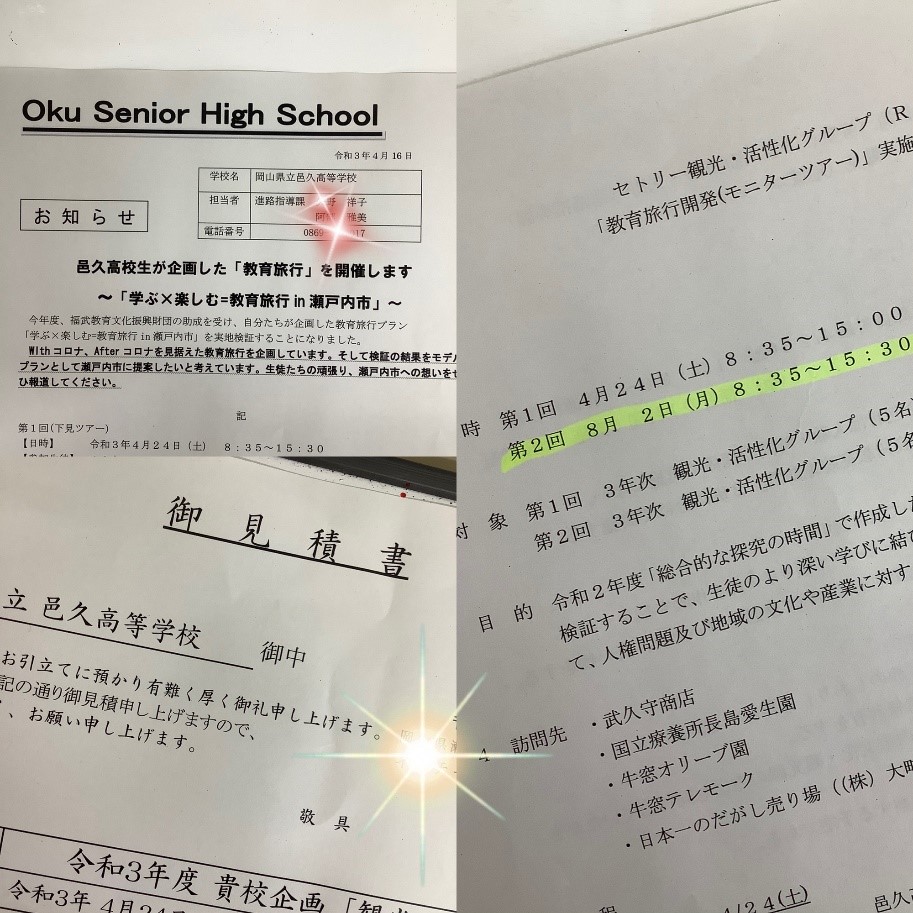 Oku Senior High School
令和3年4月16日
お知らせ
学校名 岡山県立邑久高等学校
担当者 進路指導課 野 洋子
雅美
電話番号 0869 17
邑久高校生が企画した「教育旅行」を開催します
～「学ぶ×楽しむ=教育旅行 in 瀬戸内市」～
今年度、福武教育文化振興財団の助成を受け、自分たちが企画した教育旅行プラン
「学ぶ×楽しむ=教育旅行 in 瀬戸内市」を実地検証することになりました。
Withコロナ、Afterコロナを見据えた教育旅行を企画しています。そして検証の結果をモデル
プランとして瀬戸内市に提案したいと考えています。生徒たちの頑張り、瀬戸内市への想いをぜ
ひ報道してください。
記
第1回(下見ツアー)
【日時】 令和3年4月24日(土) 8:35～15:30
御見積書
立 邑久高等学校 御中
お引立てに預かり有難く厚く御礼申し上げます。
記の通り御見積申し上げますので、
、お願い申し上げます。
敬具
令和3年度 貴校企画「観
令和3年 4月24日
セトリー観光・活性化グループ（R
「教育旅行開発(モニターツアー)」実施
時 第1回 4月24日（土）8：35～15：00
第2回 8月 2日（月）8：35～15：30
対 象 第1回 3年次 観光・活性化グループ（5名）
第2回 3年次 観光・活性化グループ（5名
目 的 令和2年度「総合的な探究の時間」で作成した
検証することで、生徒のより深い学びに結び
て、人権問題及び地域の文化や産業に対す
4 訪問先 ・武久守商店
・国立療養所長島愛生園
・牛窓オリーブ園
・牛窓テレモーク
・日本一のだがし売り場（（株）大町
程 4/24(土) 邑久高